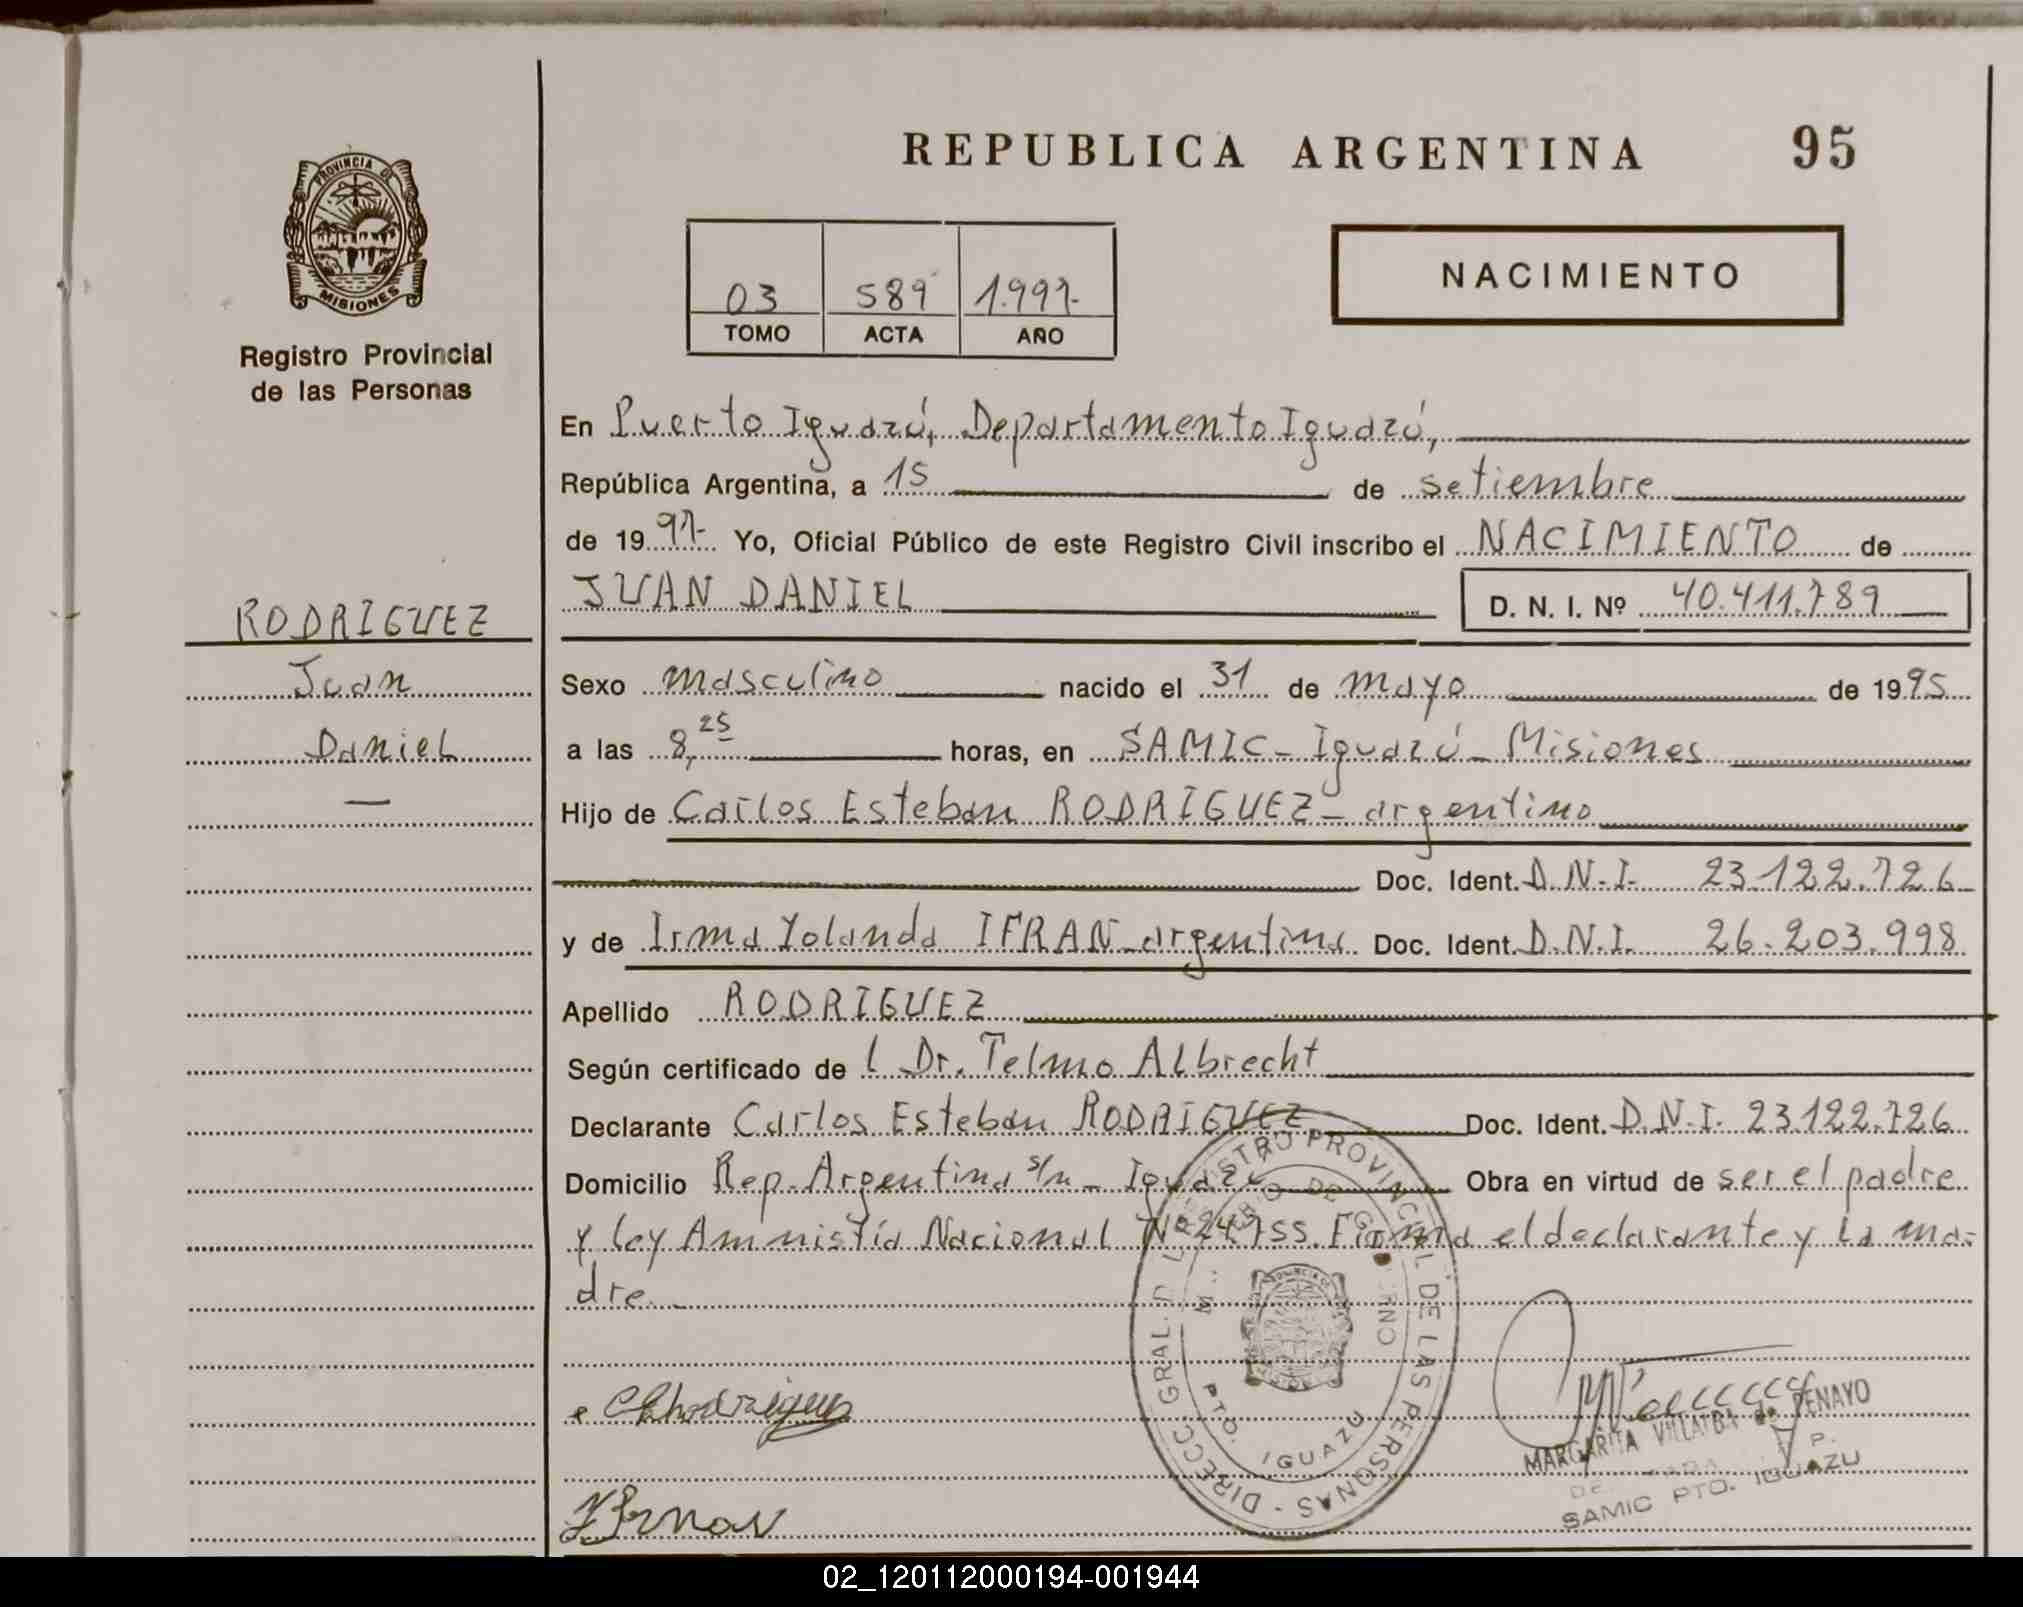 REPUBLICA ARGENTINA 95
PROVINCIA DE
MISIONES
Registro Provincial
de las Personas
NACIMIENTO
03 589 1.997-
TOMO ACTA AÑO
En Puerto Iguazú, Departamento Iguazú,
República Argentina, a 15 de setiembre
de 1997- Yo, Oficial Público de este Registro Civil inscribo el NACIMIENTO de
JUAN DANIEL D. N. I. Nº 40.411.789
RODRIGUEZ
Juan
Daniel
—
Sexo masculino nacido el 31 de mayo de 1995
a las 8,25 horas, en SAMIC - Iguazú - Misiones
Hijo de Carlos Esteban RODRIGUEZ - argentino
Doc. Ident. D.N.I. 23.122.726
y de Irma Yolanda IFRAN - argentina Doc. Ident. D.N.I. 26.203.998
Apellido RODRIGUEZ
Según certificado de l Dr. Telmo Albrecht
Declarante Carlos Esteban RODRIGUEZ Doc. Ident. D.N.I. 23.122.726
Domicilio Rep. Argentina s/n - Iguazú Obra en virtud de ser el padre
y ley Amnistía Nacional Nº 24.755. Firma el declarante y la ma-
dre.
DIRECC. GRAL. D L REGISTRO PROVINCIAL DE LAS PERSONAS -
PTO. IGUAZU
MARGARITA VILLALBA de PENAYO
SAMIC PTO. IGUAZU
02_120112000194-001944